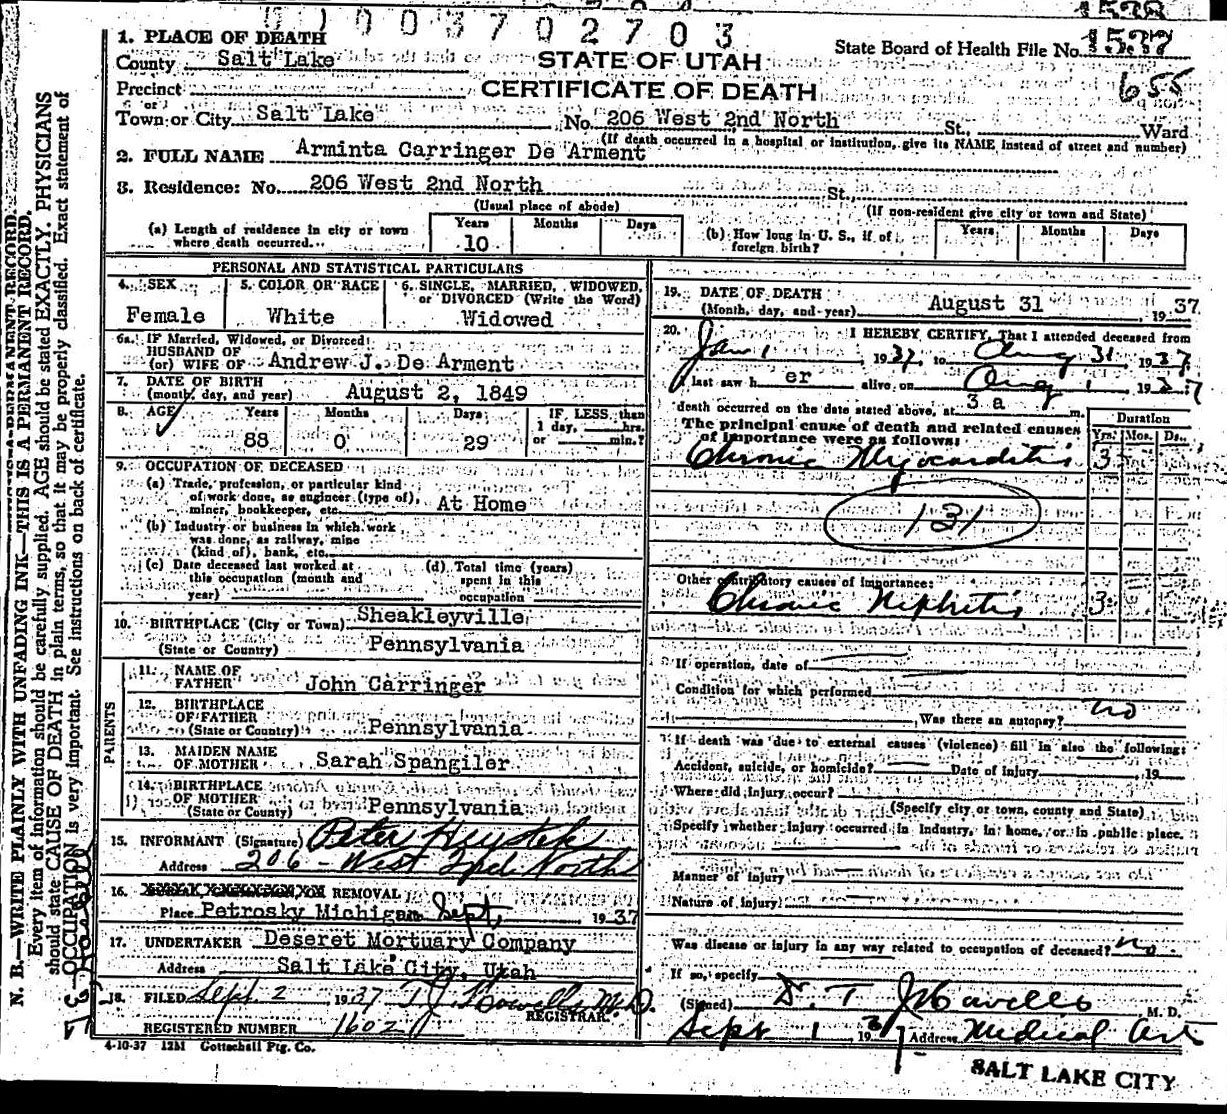 003702703
1538
1. PLACE OF DEATH
State Board of Health File No. 1538
County Salt Lake
STATE OF UTAH
655
Precinct
CERTIFICATE OF DEATH
or
Town or City Salt Lake No. 206 West 2nd North St., Ward
(If death occurred in a hospital or institution, give its NAME instead of street and number)
2. FULL NAME Arminta Carringer De Arment
3. Residence: No. 206 West 2nd North St.
(Usual place of abode) (If non-resident give city or town and State)
(a) Length of residence in city or town where death occurred... Years 10 Months Days
(b) How long in U. S., if of foreign birth? Years Months Days
PERSONAL AND STATISTICAL PARTICULARS
4. SEX Female
5. COLOR OR RACE White
6. SINGLE, MARRIED, WIDOWED, or DIVORCED (Write the Word) Widowed
6a. IF Married, Widowed, or Divorced:
HUSBAND OF
(or) WIFE OF Andrew J. De Arment
7. DATE OF BIRTH
(month, day, and year) August 2, 1849
8. AGE Years 88 Months 0 Days 29 IF LESS then 1 day, hrs. or min.?
9. OCCUPATION OF DECEASED
(a) Trade, profession, or particular kind
of work done, as engineer (type of),
miner, bookkeeper, etc. At Home
(b) Industry or business in which work
was done, as railway, mine
(kind of), bank, etc.
(c) Date deceased last worked at
this occupation (month and
year)
(d) Total time (years)
spent in this
occupation
10. BIRTHPLACE (City or Town) Sheakleyville
(State or Country) Pennsylvania
PARENTS
11. NAME OF
FATHER John Carringer
12. BIRTHPLACE
OF FATHER
(State or Country) Pennsylvania
13. MAIDEN NAME
OF MOTHER Sarah Spangiler
14. BIRTHPLACE
OF MOTHER
(State or County) Pennsylvania
15. INFORMANT (Signature) Peter
Address 206 - West 2nd North
16. OR REMOVAL
Place Petrosky Michigan Sept, 1937
17. UNDERTAKER Deseret Mortuary Company
Address Salt Lake City, Utah
18. FILED Sept. 2 1937 T J Howells M.D.
REGISTRAR.
REGISTERED NUMBER 1602
4-10-37 12M Gottschall Ptg. Co.
19. DATE OF DEATH
(Month, day, and year) August 31 1937
20. I HEREBY CERTIFY, That I attended deceased from
Jan 1 1937, to Aug 31, 1937
I last saw her alive on Aug 1 1937
death occurred on the date stated above, at 3 a m.
The principal cause of death and related causes
of importance were as follows:
Duration
Yrs. Mos. Ds.
Chronic Myocarditis 3
131
Other contributory causes of importance:
Chronic Nephritis 3
If operation, date of
Condition for which performed
Was there an autopsy? no
If death was due to external causes (violence) fill in also the following:
Accident, suicide, or homicide? Date of injury 19
Where did injury occur?
(Specify city or town, county and State)
Specify whether injury occurred in Industry, in home, or in public place.
Manner of injury
Nature of injury
Was disease or injury in any way related to occupation of deceased? no
If so, specify
(Signed) Dr. T J Howells M. D.
Sept 1 1937 Address Medical Art
SALT LAKE CITY
N. B.—WRITE PLAINLY WITH UNFADING INK—THIS IS A PERMANENT RECORD.
Every item of information should be carefully supplied. AGE should be stated EXACTLY. PHYSICIANS
should state CAUSE OF DEATH in plain terms, so that it may be properly classified. Exact statement of
OCCUPATION is very important. See instructions on back of certificate.